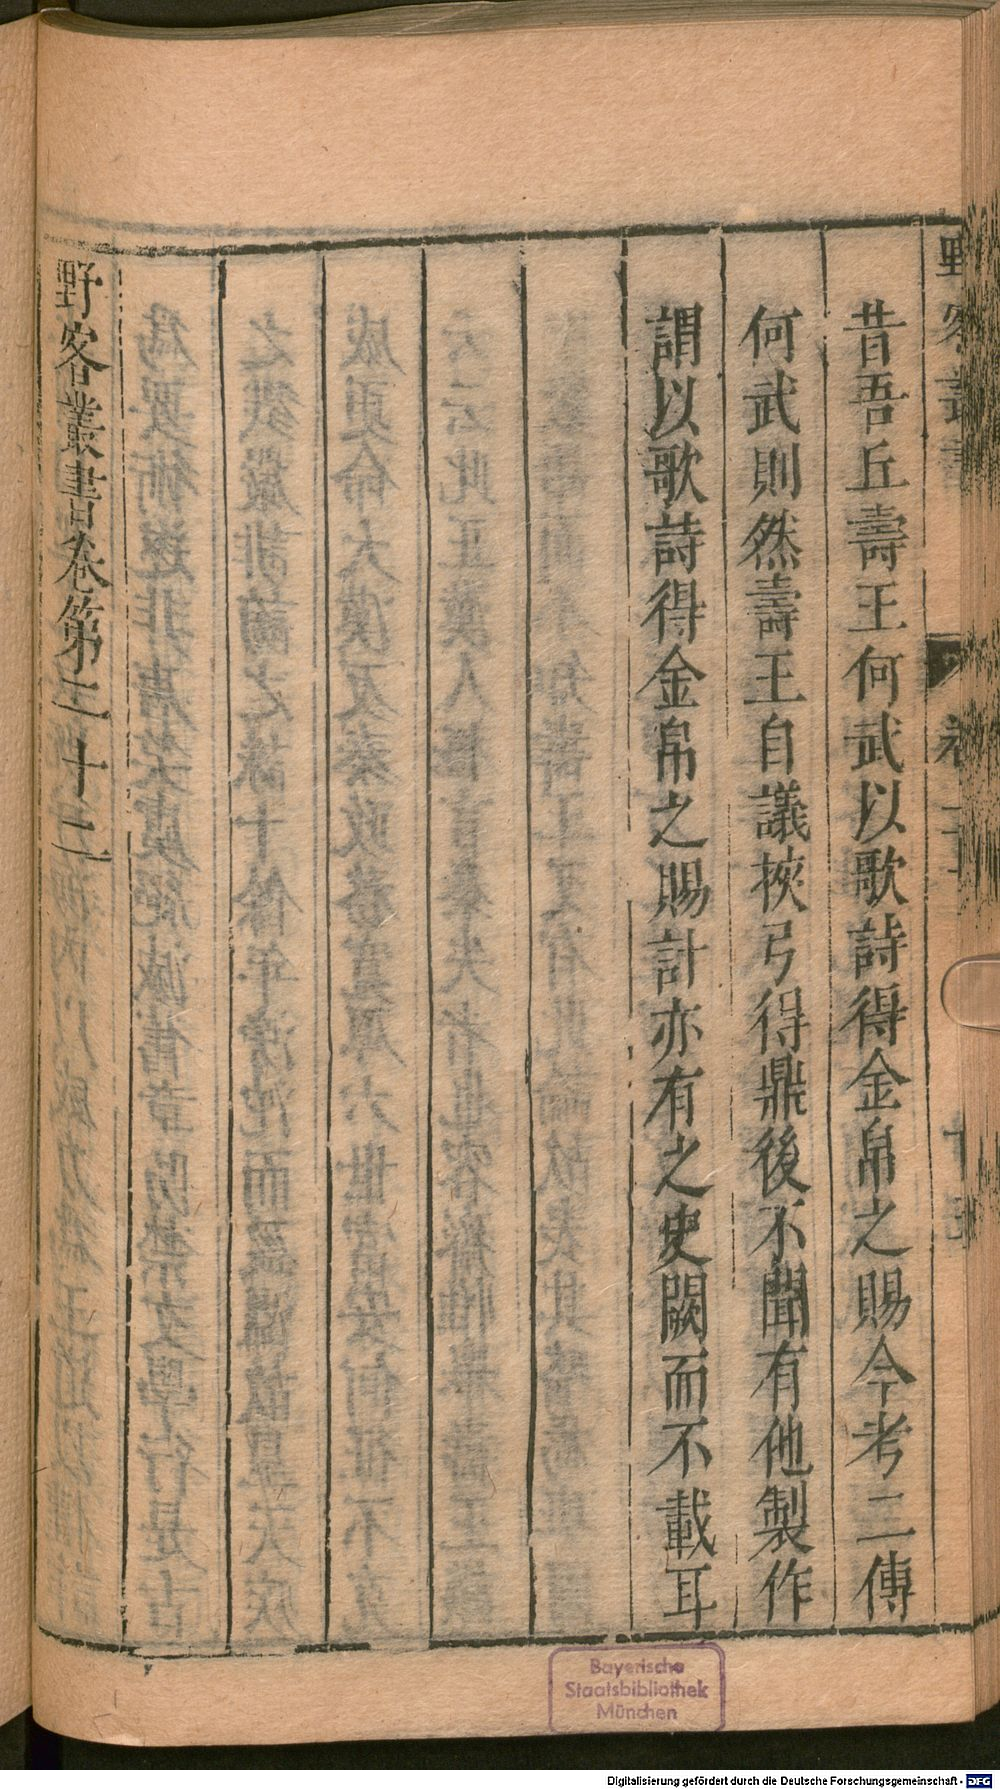 昔吾丘壽王何武以歌詩得金帛之賜今考二傳
何武則然壽王自議挾弓得鼎後不聞有他製作
謂以歌詩得金帛之賜計亦有之史闕而不載耳
野客叢書卷第二十二
Bayerische
Staatsbibliothek
München
Digitalisierung gefördert durch die Deutsche Forschungsgemeinschaft - DFG